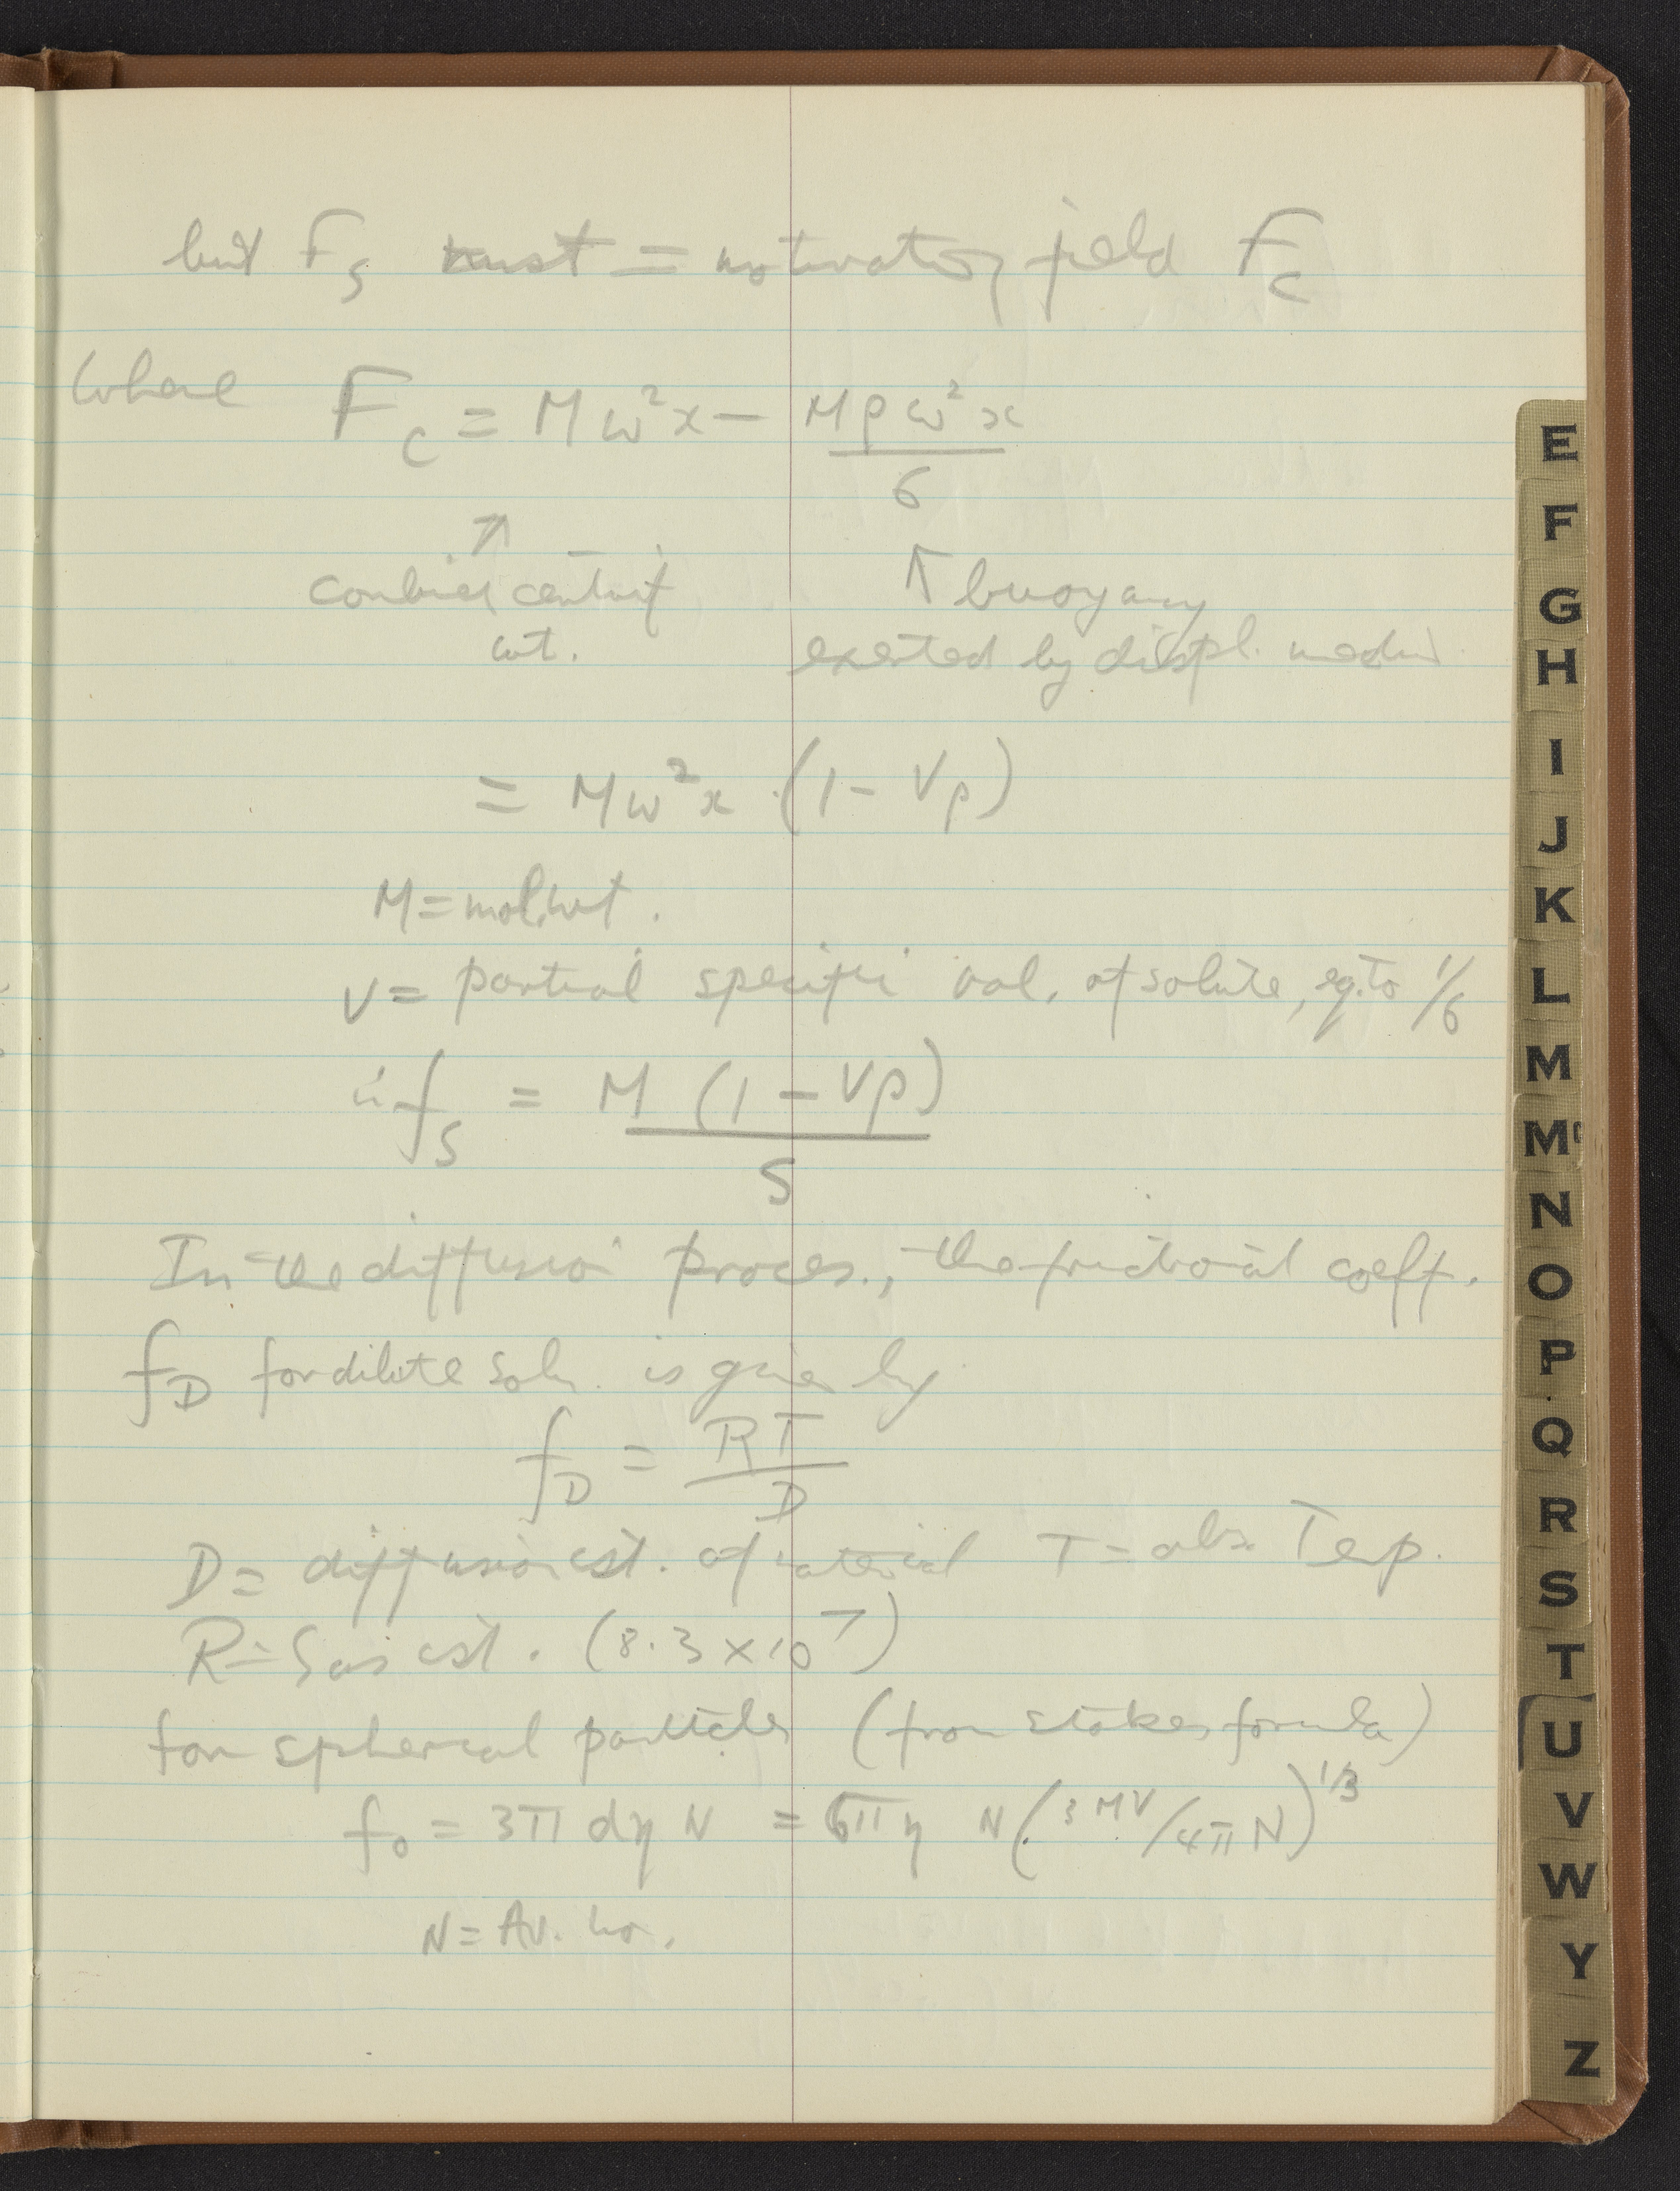 but F_S must = motivating field F_C
Where F_C = Mω²x − Mρω²x
6
↗ ↑ buoyancy
combined centrif
wt. exerted by displ. medium
= Mω²x (1 − Vρ)
M = mol. wt.
V = partial specific vol. of solute, eq. to 1/6
∴ f_S = M (1 − Vρ)
S
In the diffusion process, the frictional coeff.
f_D for dilute soln. is given by
f_D = RT
D
D = diffusion cst. of material T = abs. Temp.
R = Gas cst. (8.3 × 10⁷)
for spherical particles (from Stokes formula)
f₀ = 3π dη N = 6π η N (3 MV/4π N)^1/3
N = Av. no.
E
F
G
H
I
J
K
L
M
M
N
O
P
Q
R
S
T
U
V
W
Y
Z